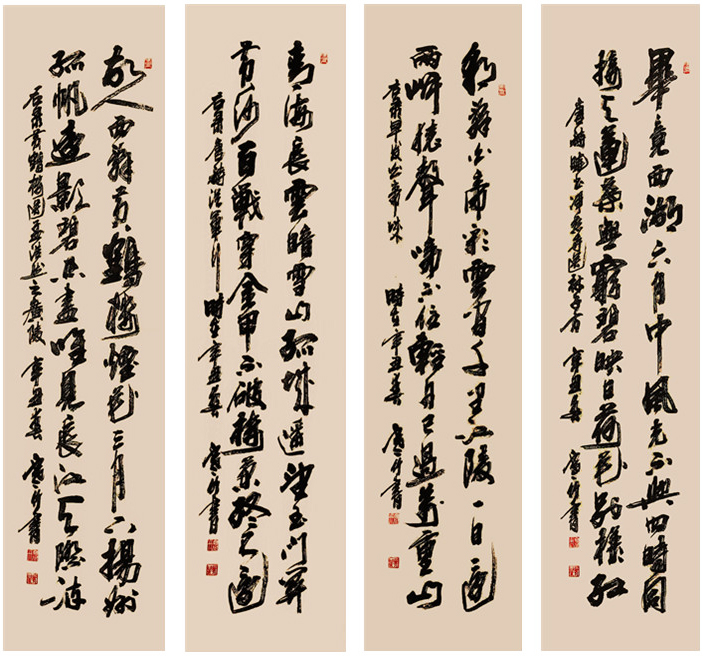 畢竟西湖六月中風光不與四時同
接天蓮葉無窮碧映日荷花別樣紅
曉出淨慈寺送林子方 辛丑春 書
朝辭白帝彩雲間千里江陵一日還
兩岸猿聲啼不住輕舟已過萬重山
早發白帝城 時在辛丑春 書
青海長雲暗雪山孤城遙望玉門關
黃沙百戰穿金甲不破樓蘭終不還
從軍行 時在辛丑春 書
故人西辭黃鶴樓煙花三月下揚州
孤帆遠影碧空盡唯見長江天際流
黃鶴樓送孟浩然之廣陵 辛丑春 書